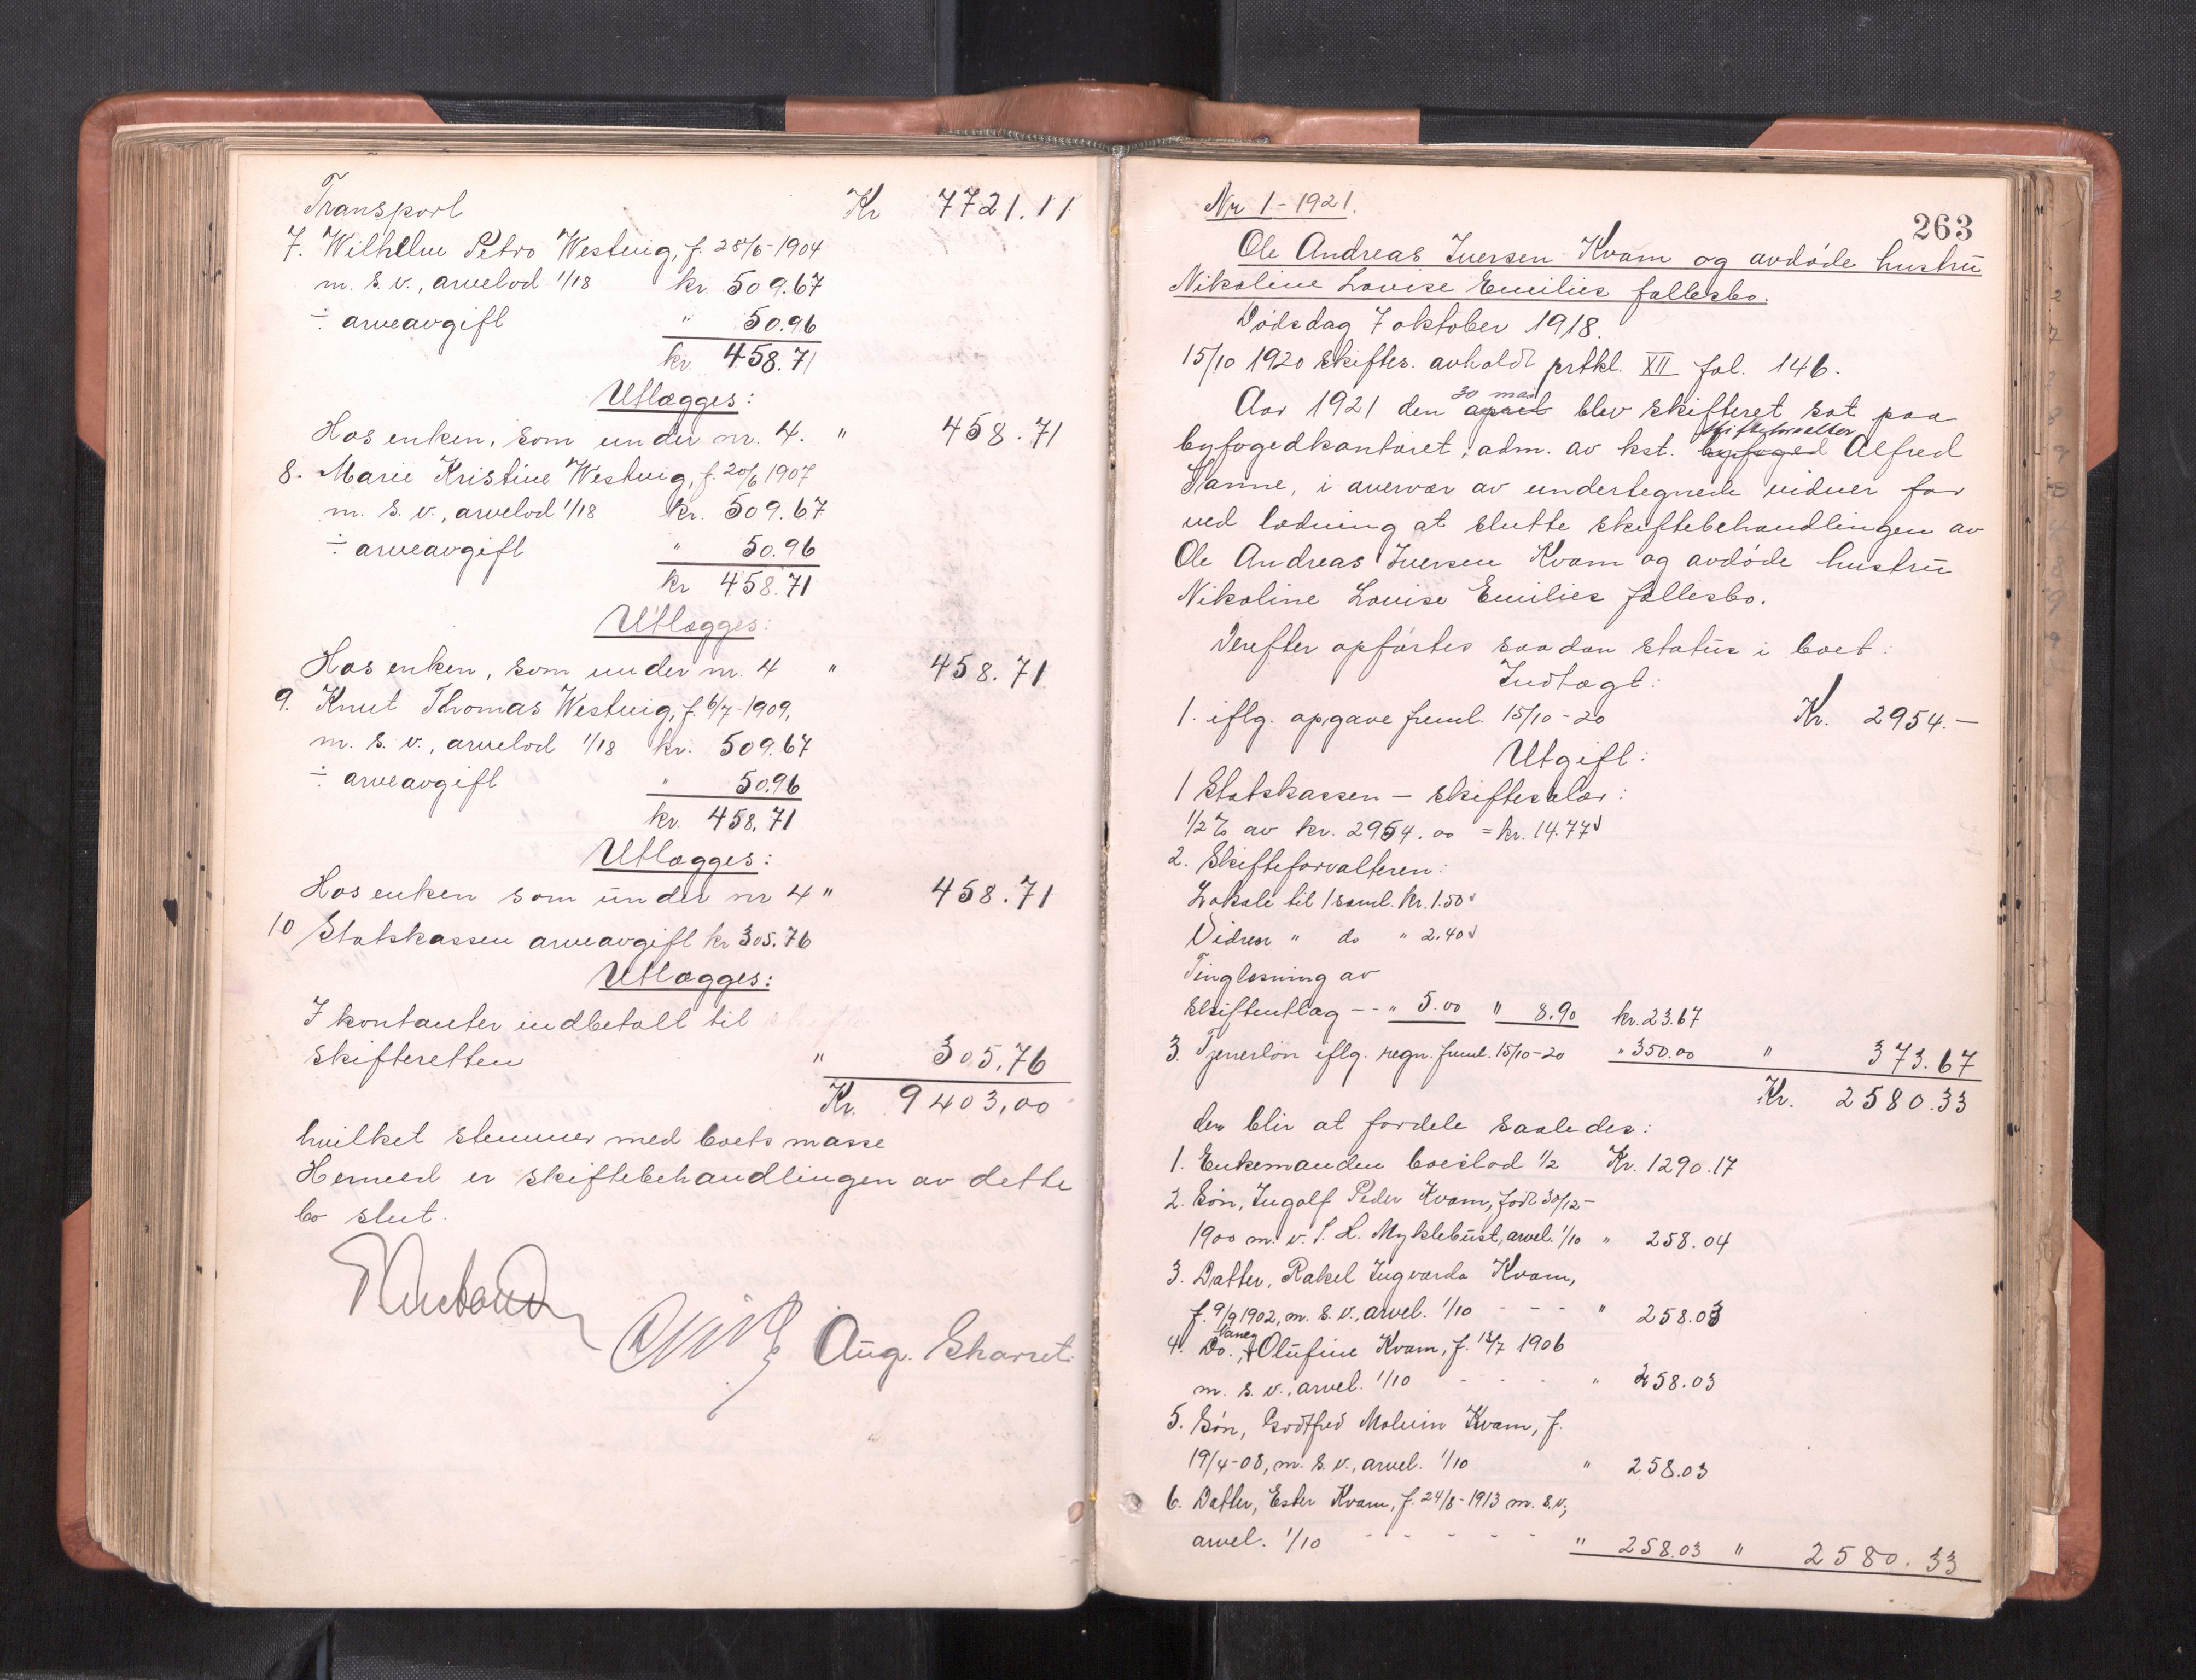 Transport Kr 7721.11
7. Wilhelm Petro Westvig, f. 28/6-1904
m. s. v., arvelod 1/18 kr. 509.67
÷ arveavgift " 50.96
kr. 458.71
Utlægges:
Hos enken, som under nr. 4. " 458.71
8. Marie Kristine Westvig, f. 20/6 1907
m. s. v., arvelod 1/18 kr. 509.67
÷ arveavgift " 50.96
kr 458.71
Utlægges:
Hos enken, som under nr. 4 " 458.71
9. Knut Thomas Westvig, f. 6/7-1909,
m. s. v., arvelod 1/18 kr. 509.67
÷ arveavgift " 50.96
kr. 458.71
Utlægges:
Hos enken som under nr 4 " 458.71
10 Statskassen arveavgift kr 305.76
Utlægges:
I kontanter indbetalt til
skifteretten " 305.76
Kr. 9403,00
hvilket stemmer med boets masse
Hermed er skiftebehandlingen av dette
bo slut.
Aug. Skarret
263
Nr 1 - 1921.
Ole Andreas Iversen Kvam og avdøde hustru
Nikoline Lovise Emilies fællesbo.
Dødsdag 7 oktober 1918.
15/10 1920 skiftes. avholdt prtkl. XII fol. 146.
30 mai
Aar 1921 den april blev skifteret sat paa
skifteforvalter
byfogedkontoret, adm. av kst. byfoged Alfred
Hanne, i overvær av undertegnede vidner for
ved lodning at slutte skiftebehandlingen av
Ole Andreas Iversen Kvam og avdøde hustru
Nikoline Lovise Emilies fællesbo.
Derefter opførtes saadan status i boet:
Indtægt:
1. iflg. opgave freml. 15/10-20 Kr. 2954.-
Utgift:
1 Statskassen - skiftesalær:
1/2 % av kr. 2954.00 = kr. 14.77
2. Skifteforvalteren:
Lokale til 1 saml. kr. 1.50
Vidner " do " 2.40
Tinglæsning av
skifteutlæg -- " 5.00 " 8.90 kr. 23.67
3. Tjenerløn iflg. regn. freml. 15/10-20 " 350.00 " 373.67
Kr. 2580.33
der blir at fordele saaledes:
1. Enkemanden boeslod 1/2 Kr. 1290.17
2. Søn, Ingolf Peder Kvam, født 30/12-
1900 m. v. S. L. Myklebust, arvel. 1/10 " 258.04
3. Datter, Rakel Ingvarda Kvam,
f. 9/9 1902, m. s. v., arvel. 1/10 - - - " 258.03
4. Do., Olufine Kvam, f. 13/7 1906
m. s. v., arvel. 1/10 - - - " 258.03
5. Søn, Godtfred Molvin Kvam, f.
19/4-08, m. s. v., arvel. 1/10 " 258.03
6. Datter, Ester Kvam, f. 24/8-1913 m. s. v.,
arvel. 1/10 - - - - - " 258.03 " 2580.33